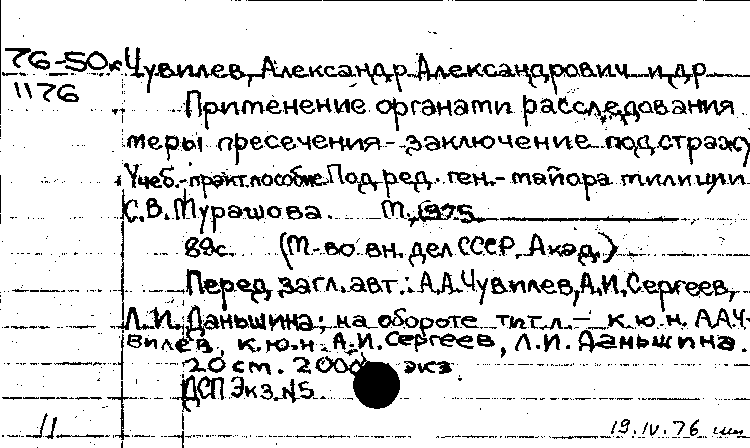 76-50к Чувилев, Александр Александрович и др
1176
Применение органами расследования
меры пресечения - заключение под стражу
Учеб.-практ. пособие. Под ред. ген.- майора милиции
С.В. Мурашова. М., 1975.
89с. (М-во вн. дел СССР. Акад.)
Перед загл. авт.: А.А. Чувилев, А.И. Сергеев,
Л.И. Даньшина; на обороте тит.л. - к.ю.н. А.А.Ч-
вилев, к.ю.н. А.И. Сергеев, Л.И. Даньшина.
20 см. 2000 экз.
ДСП Экз. №5
11 19.IV.76